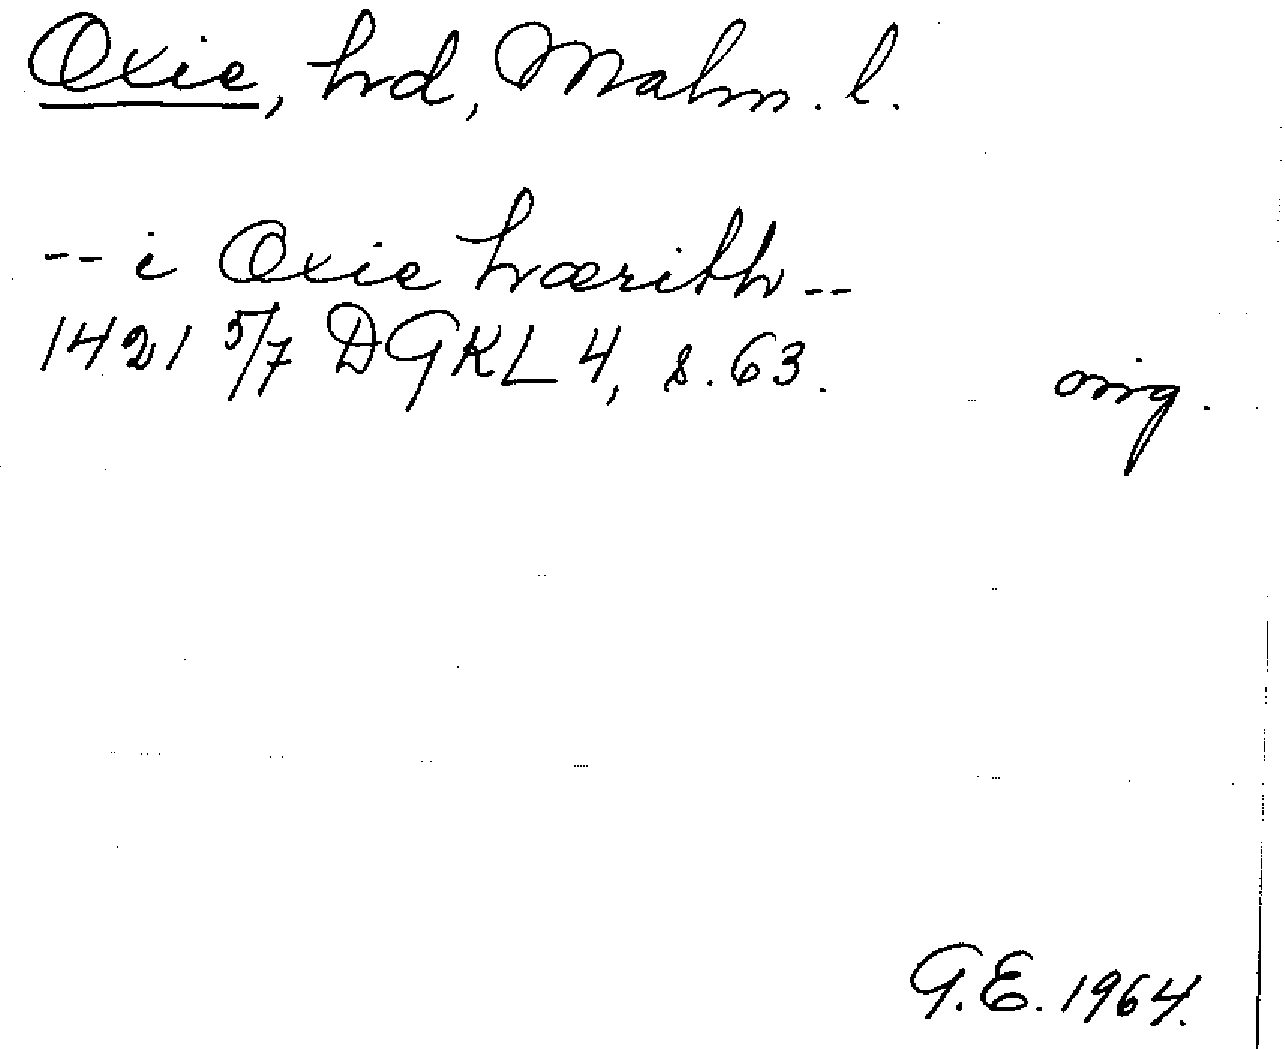 Oxie, hd, Malm. l.
-- i Oxie hæerith --
1421 5/7 DGKL 4, s. 63.
orig.
G.E. 1964.